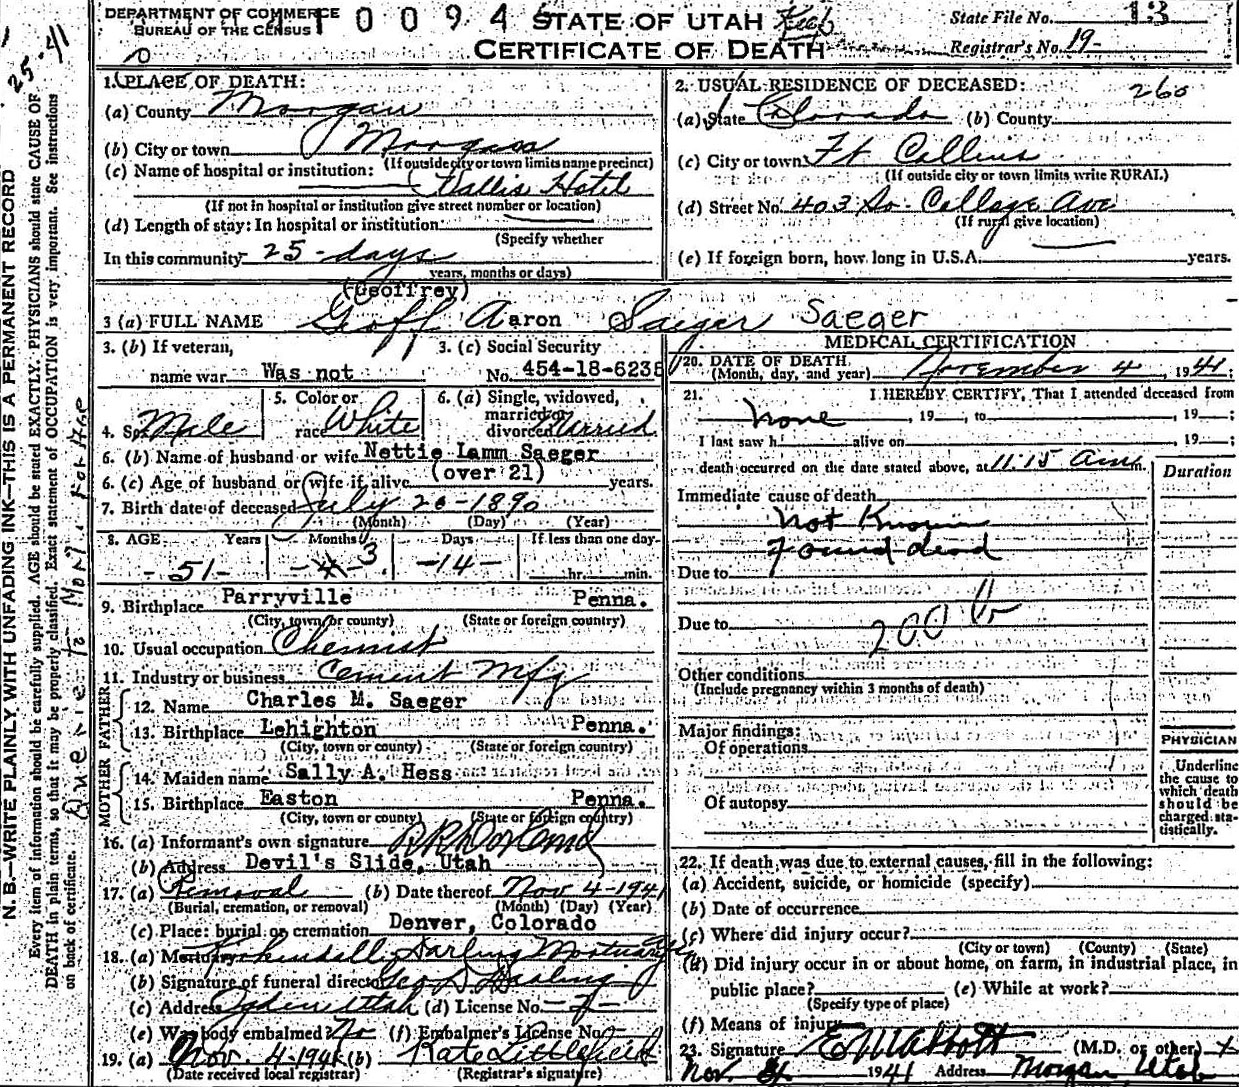 DEPARTMENT OF COMMERCE
BUREAU OF THE CENSUS
1 0 0 9 4
STATE OF UTAH
CERTIFICATE OF DEATH
State File No. 13
Registrar's No. 19-
25-41
N. B.—WRITE PLAINLY WITH UNFADING INK—THIS IS A PERMANENT RECORD
Every item of information should be carefully supplied. AGE should be stated EXACTLY. PHYSICIANS should state CAUSE OF
DEATH in plain terms, so that it may be properly classified. Exact statement of OCCUPATION is very important. See instructions
on back of certificate.
1. PLACE OF DEATH:
(a) County Morgan
(b) City or town Morgan
(If outside city or town limits name precinct)
(c) Name of hospital or institution:
Hotel
(If not in hospital or institution give street number or location)
(d) Length of stay: In hospital or institution
(Specify whether
In this community 25-days
years, months or days)
2. USUAL RESIDENCE OF DECEASED: 260
(a) State Colorado (b) County
(c) City or town Ft Collins
(If outside city or town limits write RURAL)
(d) Street No. 403 So. College Ave
(If rural give location)
(e) If foreign born, how long in U.S.A. years.
(Geoffrey)
3 (a) FULL NAME Geoff Aaron Saeger Saeger
3. (b) If veteran, name war Was not
3. (c) Social Security No. 454-18-6238
4. Sex Male
5. Color or race White
6. (a) Single, widowed, married or divorced Married
6. (b) Name of husband or wife Nettie Lamm Saeger
(over 21)
6. (c) Age of husband or wife if alive years.
7. Birth date of deceased July 20-1890
(Month) (Day) (Year)
8. AGE Years Months Days If less than one day
-51- -4- 3 -14- hr. min.
9. Birthplace Parryville Penna.
(City, town or county) (State or foreign country)
10. Usual occupation Chemist
11. Industry or business Cement Mfg
FATHER
12. Name Charles M. Saeger
13. Birthplace Lehighton Penna.
(City, town or county) (State or foreign country)
MOTHER
14. Maiden name Sally A. Hess
15. Birthplace Easton Penna.
(City, town or county) (State or foreign country)
16. (a) Informant's own signature
(b) Address Devil's Slide, Utah
17. (a) Removal (b) Date thereof Nov 4-1941
(Burial, cremation, or removal) (Month) (Day) (Year)
(c) Place: burial or cremation Denver, Colorado
18. (a) Mortuary Kirkendall Darling Mortuary
(b) Signature of funeral director Geo D Darling
(c) Address Ogden Utah (d) License No.
(e) Was body embalmed? No (f) Embalmer's License No.
19. (a) Nov. 4-1941 (b) Kate Littlefield
(Date received local registrar) (Registrar's signature)
MEDICAL CERTIFICATION
20. DATE OF DEATH
(Month, day, and year) November 4, 1941;
21. I HEREBY CERTIFY, That I attended deceased from
None, 19 , to , 19 ;
I last saw h alive on , 19 ;
death occurred on the date stated above, at 11:15 am.
Duration
Immediate cause of death
Not Known
Found dead
Due to
Due to
200 b
Other conditions
(Include pregnancy within 3 months of death)
Major findings:
Of operations
Of autopsy
PHYSICIAN
Underline
the cause to
which death
should be
charged sta-
tistically.
22. If death was due to external causes, fill in the following:
(a) Accident, suicide, or homicide (specify)
(b) Date of occurrence
(c) Where did injury occur?
(City or town) (County) (State)
(d) Did injury occur in or about home, on farm, in industrial place, in
public place? (e) While at work?
(Specify type of place)
(f) Means of injury
23. Signature E M Abbott (M.D. or other) x
Nov. 1941 Address Morgan Utah